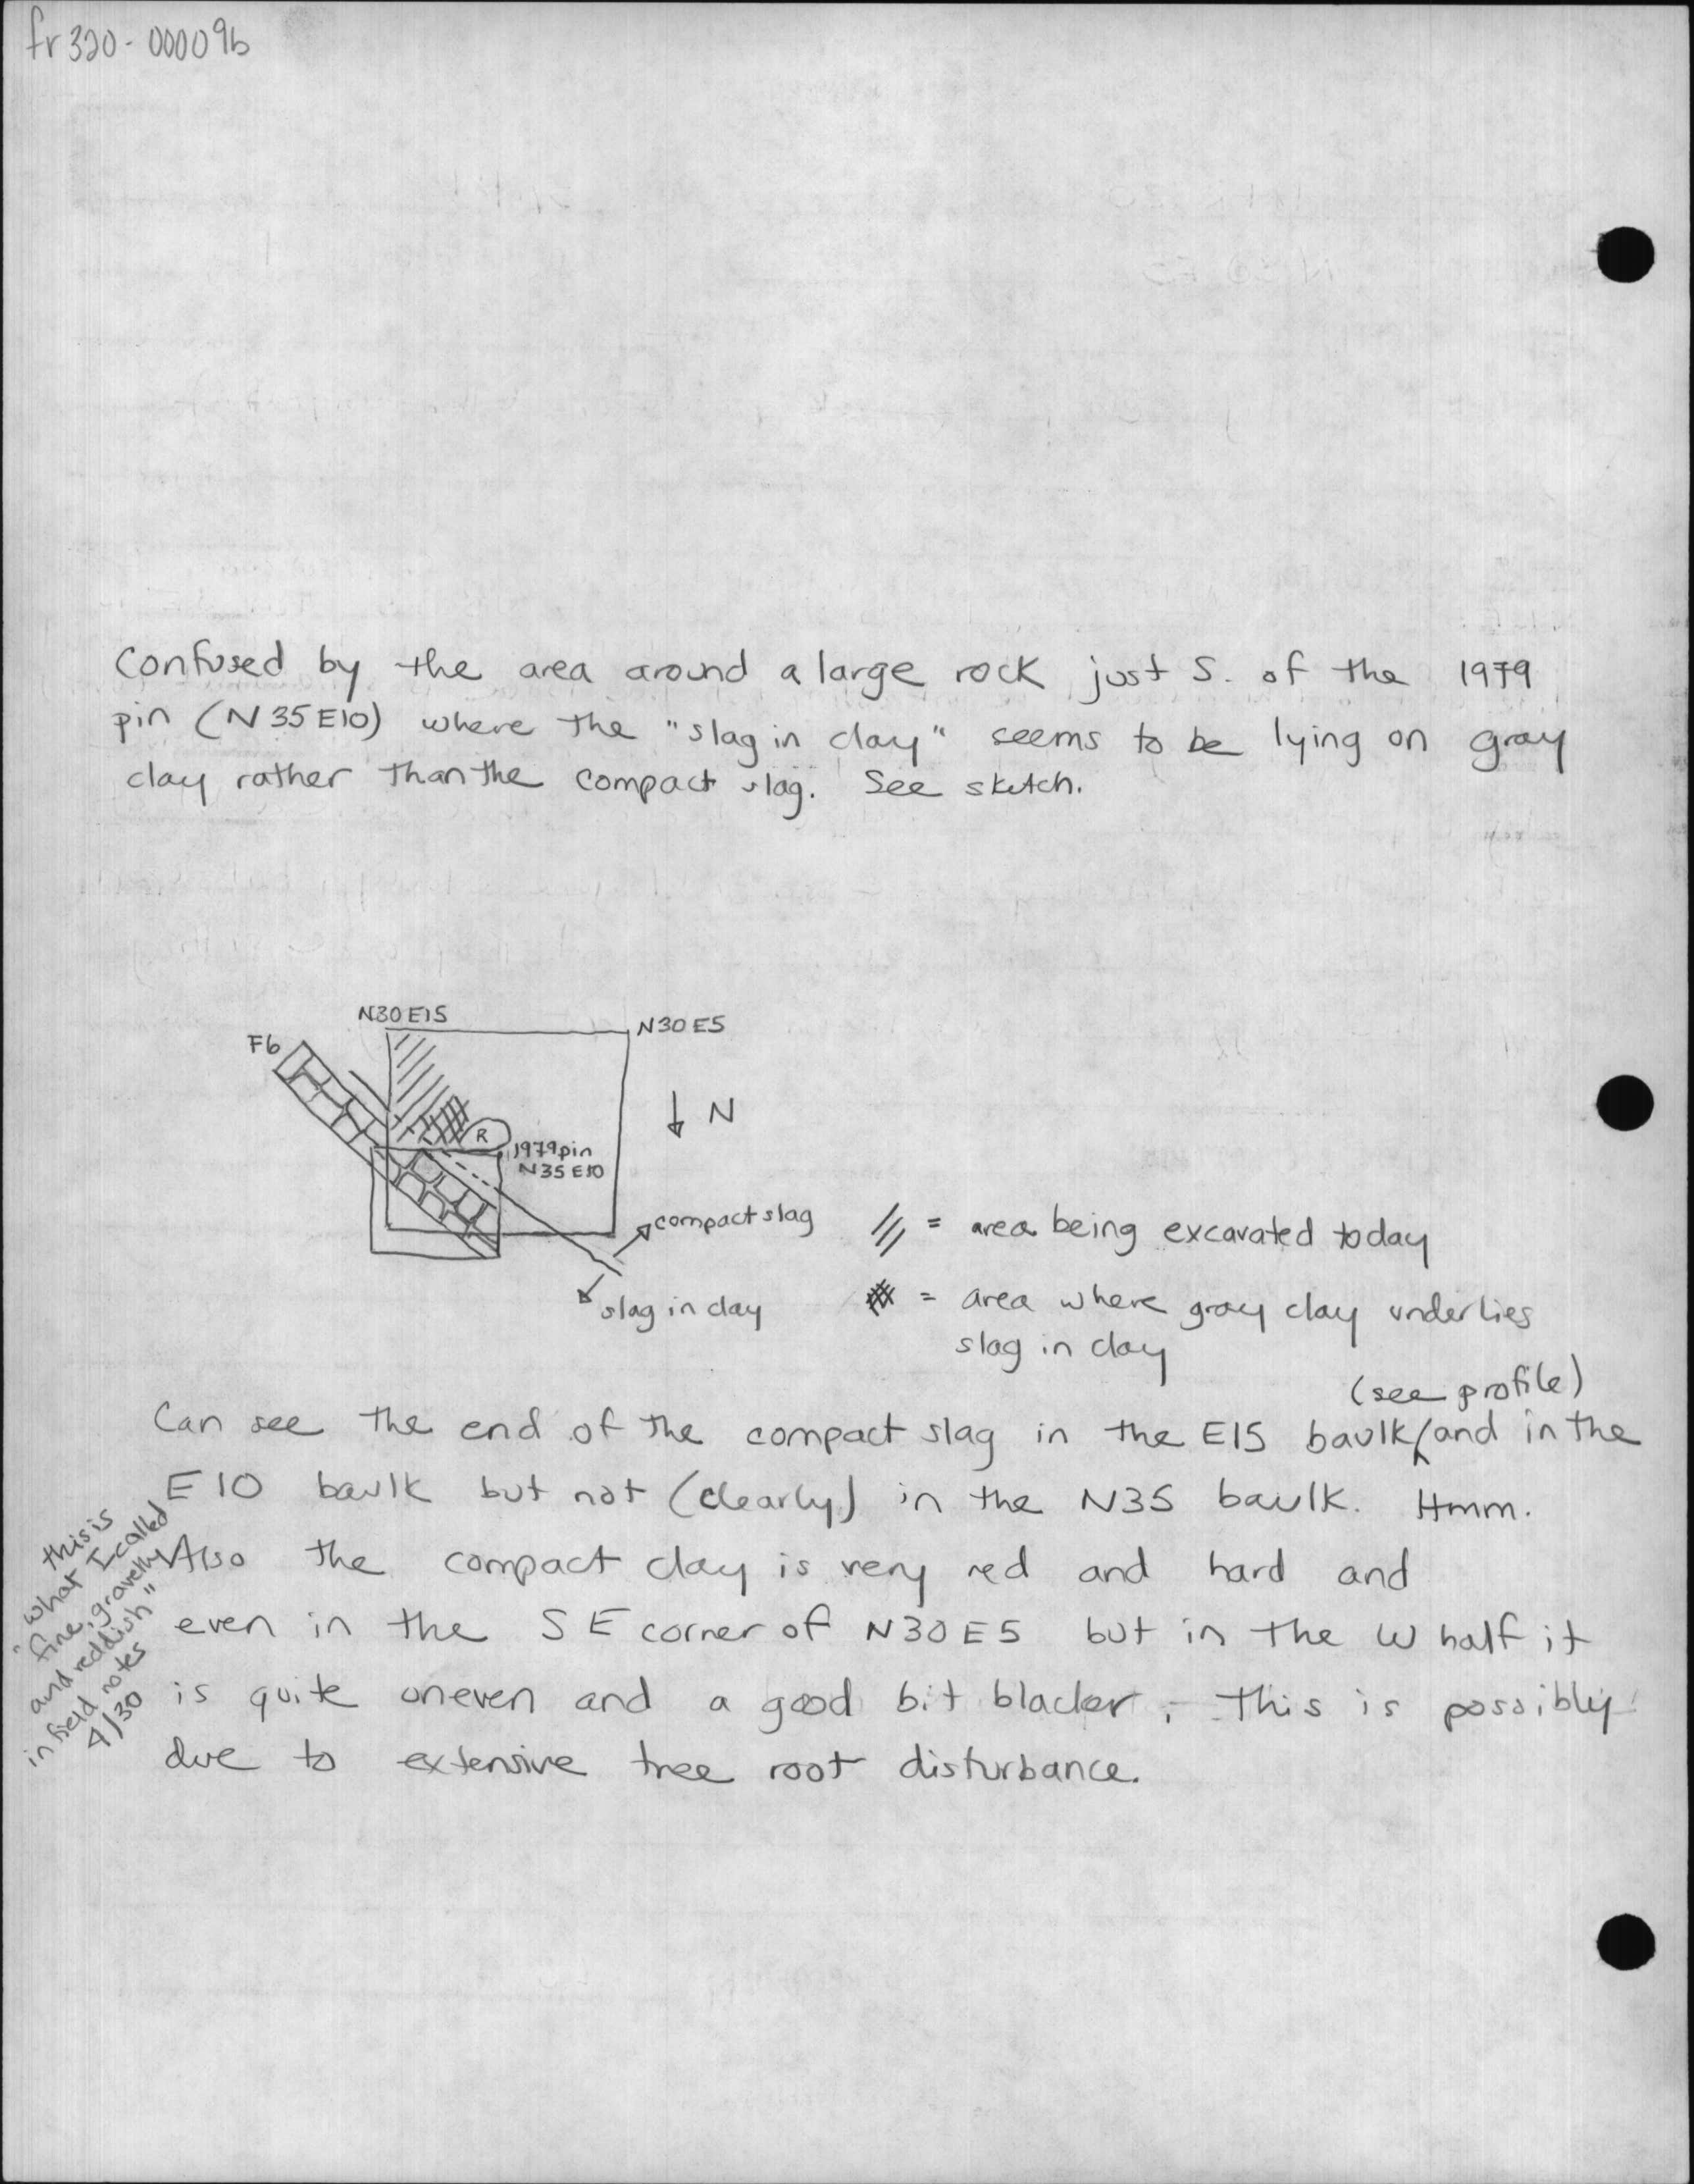 fr320-00009b
Confused by the area around a large rock just S. of the 1979
pin (N35E10) where the "slag in clay" seems to be lying on gray
clay rather than the compact slag. See sketch.
N30E15
N30E5
F6
N
R
1979 pin
N35E10
compact slag
slag in clay
= area being excavated today
= area where gray clay underlies
slag in clay
(see profile)
Can see the end of the compact slag in the E15 baulk and in the
E10 baulk but not (clearly) in the N35 baulk. Hmm.
Also the compact clay is very red and hard and
even in the SE corner of N30E5 but in the W half it
is quite uneven and a good bit blacker, this is possibly
due to extensive tree root disturbance.
this is
what I called
"fine, gravelly
and reddish"
in field notes
4/30